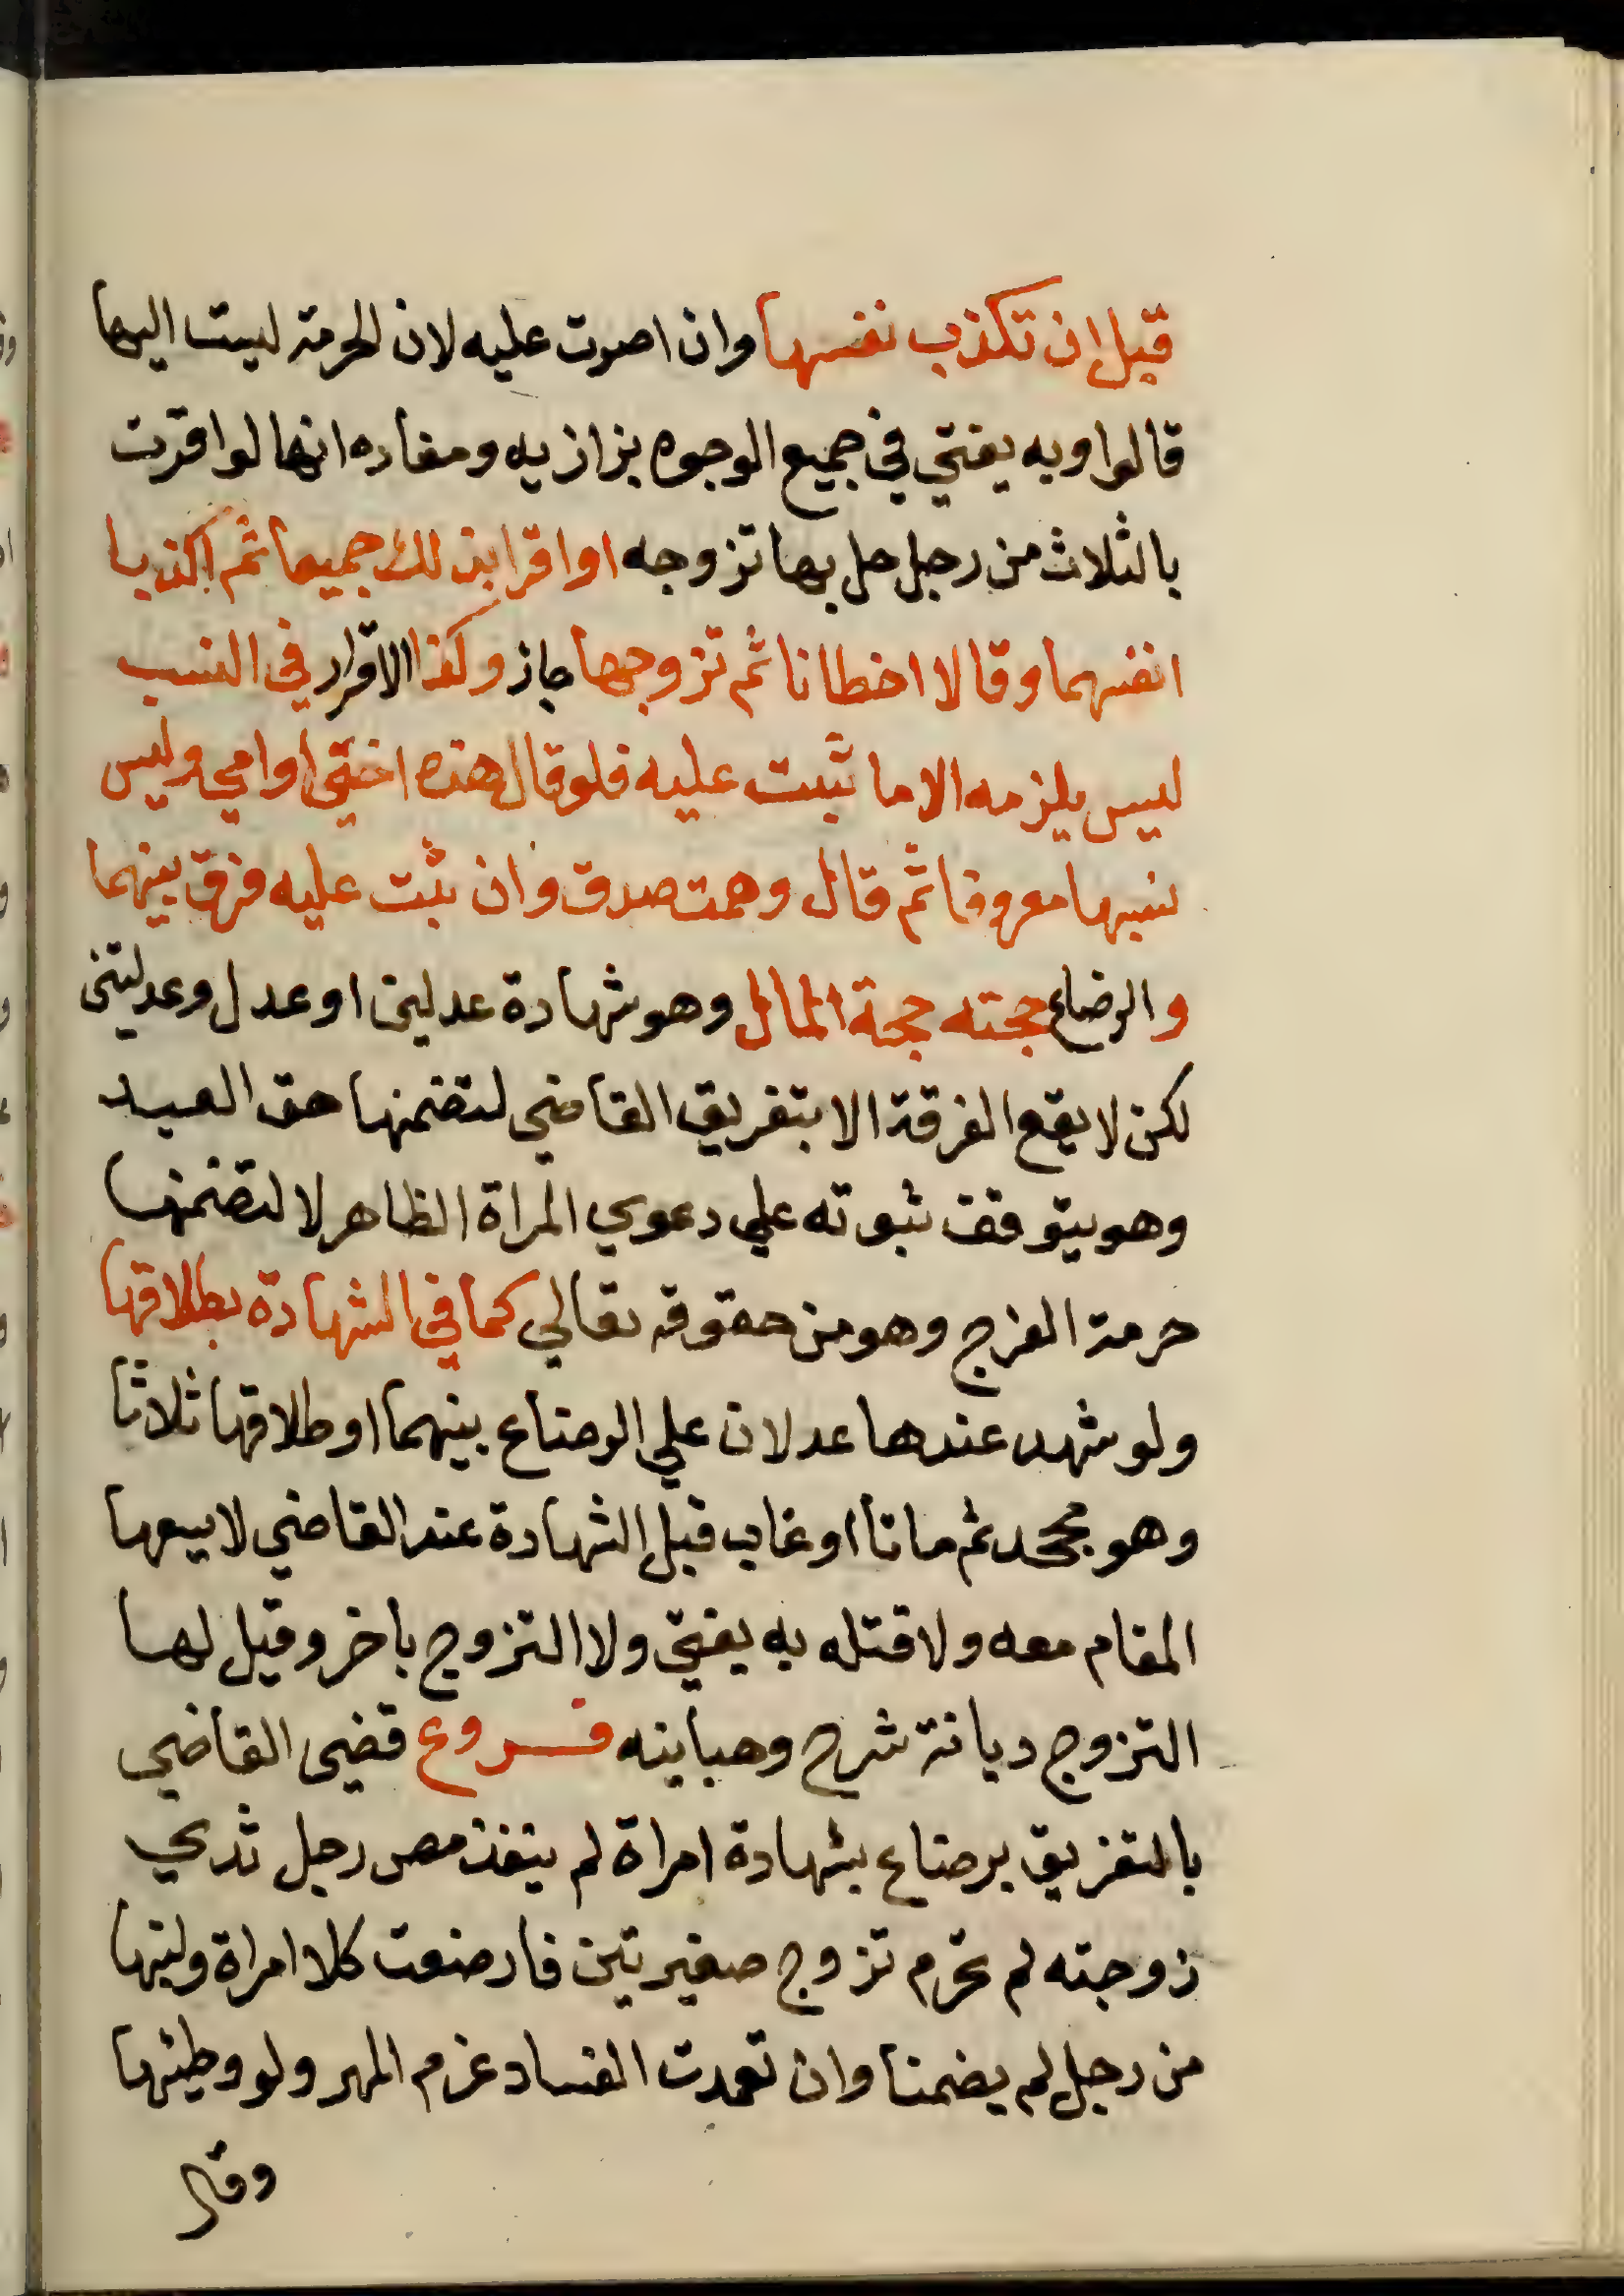 قبل ان تكذب نفسها وان اصرت عليه لان الحرمة ليست اليها
قالوا وبه يفتي في جميع الوجوه بزازيه ومفاده انها لو اقرت
بالثلاث من رجل حل بها تزوجه او اقرا بذلك جميعا ثم اكذبا
انفسهما وقالا اخطانا ثم تزوجها جاز وكذا الاقرار في النسب
ليس يلزمه الا ما ثبت عليه فلو قال هذه اختي او امي وليس
نسبها معروفا ثم قال وهمت صدق وان ثبت عليه فرق بينهما
والرضاع حجته حجة المال وهو شهادة عدلين او عدل وعدلتين
لكن لا يقع الفرقة الا بتفريق القاضي لتضمنها حق العبد
وهو يتوقف ثبوته علي دعوي المراة الظاهر لا لتضمنها
حرمة الفرج وهو من حقوقه تعالي كما في الشهادة بطلاقها
ولو شهد عندها عدلان علي الرضاع بينهما او طلاقها ثلاثا
وهو يجحد ثم ماتا او غاب قبل الشهادة عند القاضي لا يسعها
المقام معه ولا قتله به يفتي ولا التزوج باخر وقيل لها
التزوج ديانة شرح وهبانيه فروع قضي القاضي
بالتفريق برضاع بشهادة امراة لم ينفذ مص رجل ثدي
زوجته لم تحرم تزوج صغيرتين فارضعت كلا امراة ولبنها
من رجل لم يضمنا وان تعمدت الفساد غرم المهر ولو وطيئها
وقال